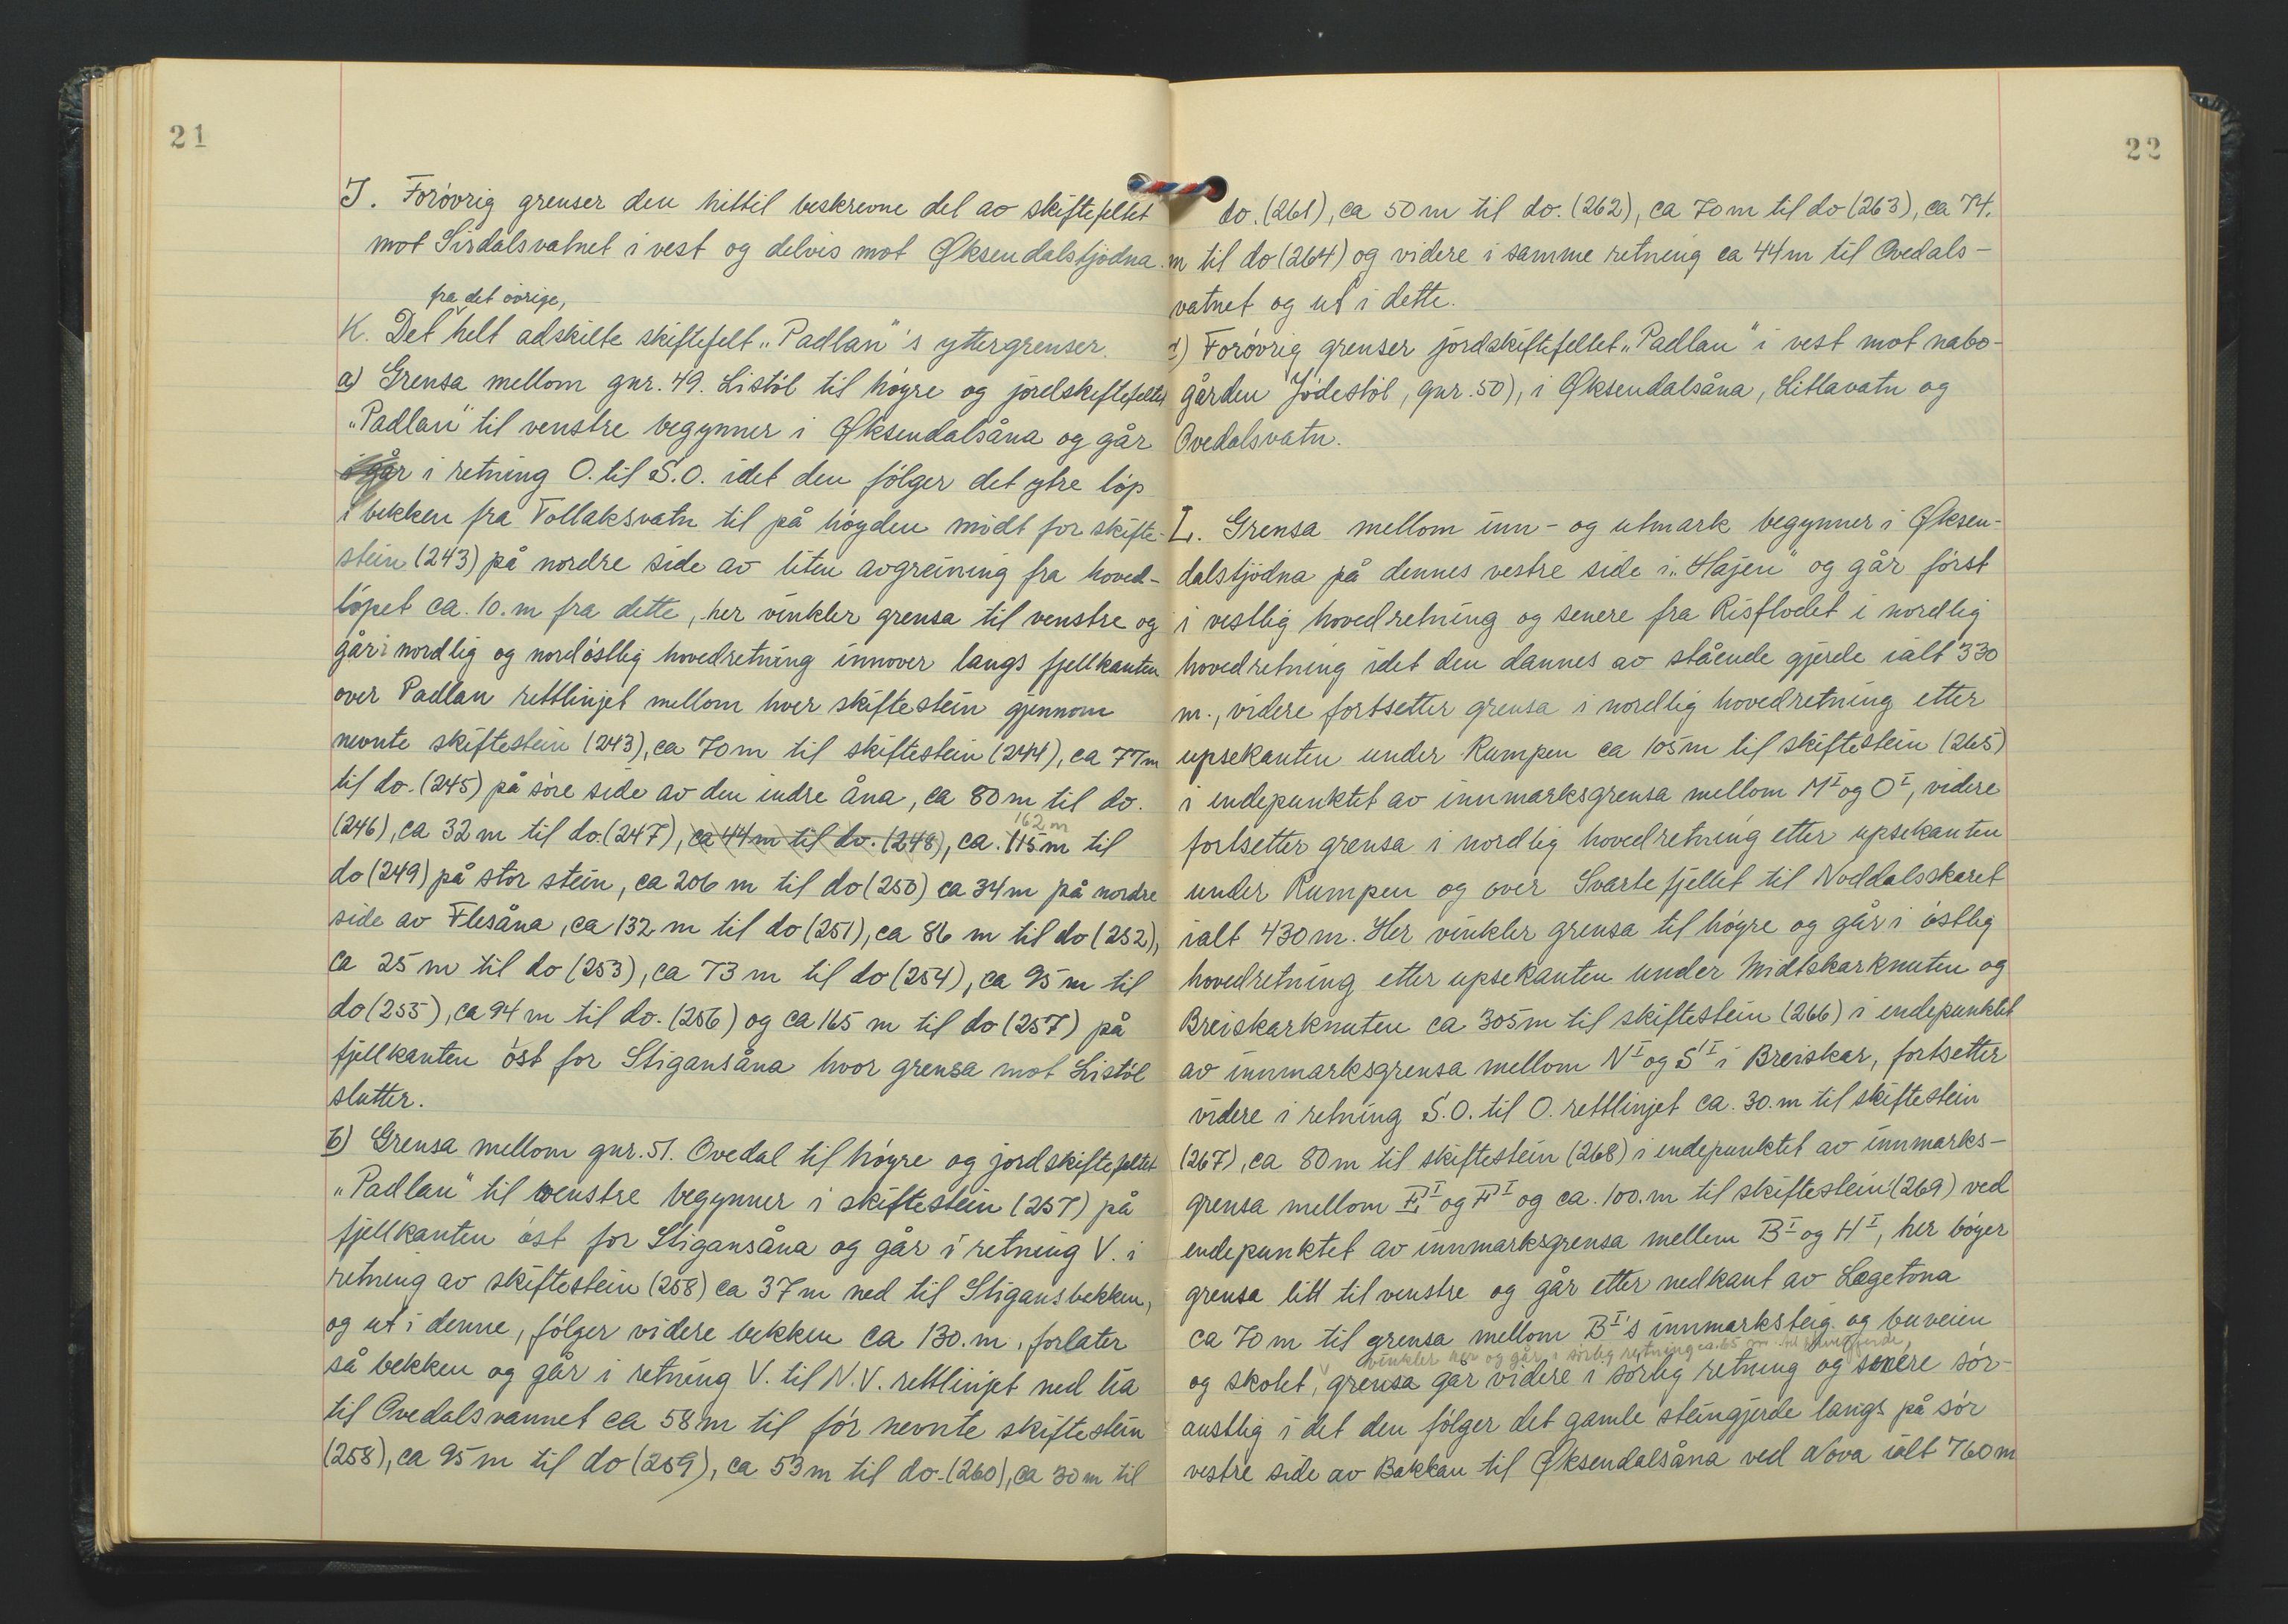 21
J. Forøvrig grenser den hittil beskrevne del av skiftefeltet
mot Sirdalsvatnet i vest og delvis mot Øksendalstjødna.
fra det øvrige,
K. Det helt adskilte skiftefelt „Padlan"'s yttergrenser.
a) Grensa mellom gnr. 49. Listöl til høgre og jordskiftefeltet
„Padlan" til venstre begynner i Øksendalsåna og går
i retning O. til S.O. idet den følger det ytre løp
i bekken fra Tollaksvatn til på høyden midt for skifte-
stein (243) på nordre side av liten avgreining fra hoved-
løpet ca. 10. m fra dette, her vinkler grensa til venstre og
går i nordlig og nordøstlig hovedretning innover langs fjellkanten
over Padlan rettlinjet mellom hver skiftestein gjennom
nevnte skiftestein (243), ca 70 m til skiftestein (244), ca 77 m
til do. (245) på søre side av den indre åna, ca 80 m til do.
162 m
(246), ca 32 m til do. (247), ca 44 m til do. (248), ca. 115 m til
do (249) på stor stein, ca 206 m til do (250) ca 34 m på nordre
side av Flesåna, ca 132 m til do (251), ca 86 m til do (252),
ca 25 m til do (253), ca 73 m til do (254), ca 95 m til
do (255), ca 94 m til do. (256) og ca 165 m til do (257) på
fjellkanten øst for Stigansåna hvor grensa mot Listøl
slutter.
b) Grensa mellom gnr. 51. Ovedal til høgre og jordskiftefeltet
„Padlan" til venstre begynner i skiftestein (257) på
fjellkanten øst for Stigansåna og går i retning V. i
retning av skiftestein (258) ca 37 m ned til Stigansbekken,
og ut i denne, følger videre bekken ca 130. m, forlater
så bekken og går i retning V. til N.V. rettlinjet ned lia
til Ovedalsvannet ca 58 m til før nevnte skiftestein
(258), ca 95 m til do (259), ca 53 m til do. (260), ca 30 m til
22
do. (261), ca 50 m til do. (262), ca 70 m til do (263), ca 74.
m til do (264) og videre i samme retning ca 44 m til Ovedals-
vatnet og ut i dette.
Forøvrig grenser jordskiftefeltet „Padlan" i vest mot nabo-
gården Jødestøl, gnr. 50), i Øksendalsåna, Litlavatn og
Ovedalsvatn.
L. Grensa mellom inn- og utmark begynner i Øksen-
dalstjødna på dennes vestre side i „Hajen" og går først
i vestlig hovedretning og senere fra Risflodet i nordlig
hovedretning idet den dannes av stående gjerde ialt 330
m., videre fortsetter grensa i nordlig hovedretning etter
upsekanten under Rumpen ca 105 m til skiftestein (265)
i endepunktet av innmarksgrensa mellom M^I og O^I, videre
fortsetter grensa i nordlig hovedretning etter upsekanten
under Rumpen og over Svartefjellet til Noddalsskaret
ialt 430 m. Her vinkler grensa til høgre og går i østlig
hovedretning etter upsekanten under Midtskarknuten og
Breiskarknuten ca 305 m til skiftestein (266) i endepunktet
av innmarksgrensa mellom N^I og S^I i Breiskar, fortsetter
videre i retning S.O. til O. rettlinjet ca. 30. m til skiftestein
(267), ca 80 m til skiftestein (268) i endepunktet av innmarks-
grensa mellom E^I og F^I og ca. 100. m til skiftestein (269) ved
endepunktet av innmarksgrensa mellem B^I og H^I, her bøyer
grensa litt til venstre og går etter nedkant av Lægetona
ca 70 m til grensa mellom B^I's innmarksteig og buveien
vinkler her og går i sørlig retning ca. 65 m. til
og skolet, grensa går videre i sørlig retning og senere sør-
austlig i det den følger det gamle steingjerde langs på sør
vestre side av Bakkan til Øksendalsåna ved Nova ialt 760 m